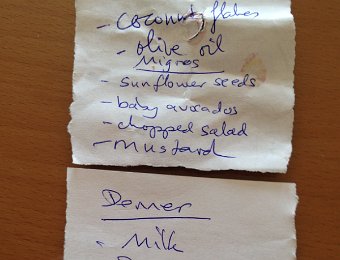 - coconut flakes
- olive oil
Migros
- sunflower seeds
- baby avocados
- chopped salad
- mustard
Denner
- Milk